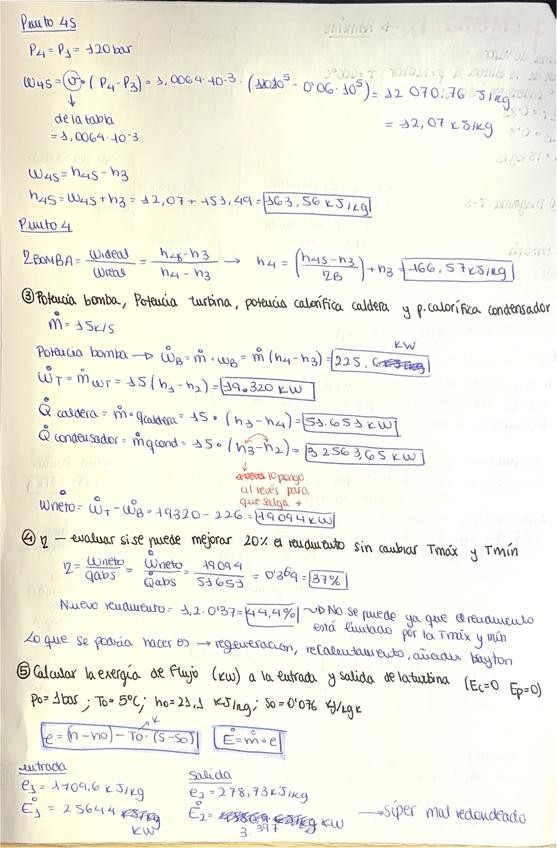 Punto 4s
P4 = P3 = 120 bar
w4s = v · (P4 - P3) = 1,0064·10-3 · (120·10^5 - 0'06·10^5) = 12 070,76 J/kg
= 12,07 kJ/kg
de la tabla
= 1,0064·10-3
w4s = h4s - h3
h4s = w4s + h3 = 12,07 + 151,49 = 163,56 kJ/kg
Punto 4
ηBOMBA = wideal/wreal = (h4s - h3)/(h4 - h3) → h4 = ((h4s - h3)/ηB) + h3 = 166,57 kJ/kg
③ Potencia bomba, Potencia turbina, potencia calorífica caldera y p. calorífica condensador
ṁ = 15 k/s
Potencia bomba → ẇB = ṁ · wB = ṁ (h4 - h3) = 225,6 KW
ẇT = ṁ wT = 15 (h1 - h2) = 19.320 KW
Q̇ caldera = ṁ · qcaldera = 15 · (h1 - h4) = 51.651 KW
Q̇ condensador = ṁ qcond = 15 · (h3 - h2) = 32563,65 KW
lo pongo
al revés para
que salga +
ẇneto = ẇT - ẇB = 19320 - 226 = 19094 KW
④ η — evaluar si se puede mejorar 20% el rendimiento sin cambiar Tmáx y Tmín
η = wneto/qabs = ẇneto/Q̇abs = 19094/51651 = 0'369 = 37%
Nuevo rendimiento = 1,2 · 0'37 = 44,4% → No se puede ya que el rendimiento
está limitado por la Tmáx y mín
Lo que se podría hacer es → regeneracion, recalentamiento, añadir brayton
⑤ Calcular la exergía de Flujo (kw) a la entrada y salida de la turbina (Ec=0 Ep=0)
P0 = 1bar ; T0 = 5ºC ; h0 = 21,1 kJ/kg ; s0 = 0'076 kJ/kg k
K
e = (h - h0) - T0 · (s - s0) Ė = ṁ · e
entrada
e1 = 1709,6 kJ/kg
Ė1 = 25644 KW
salida
e2 = 278,73 kJ/kg
Ė2 = 3.397 KW → súper mal redondeado